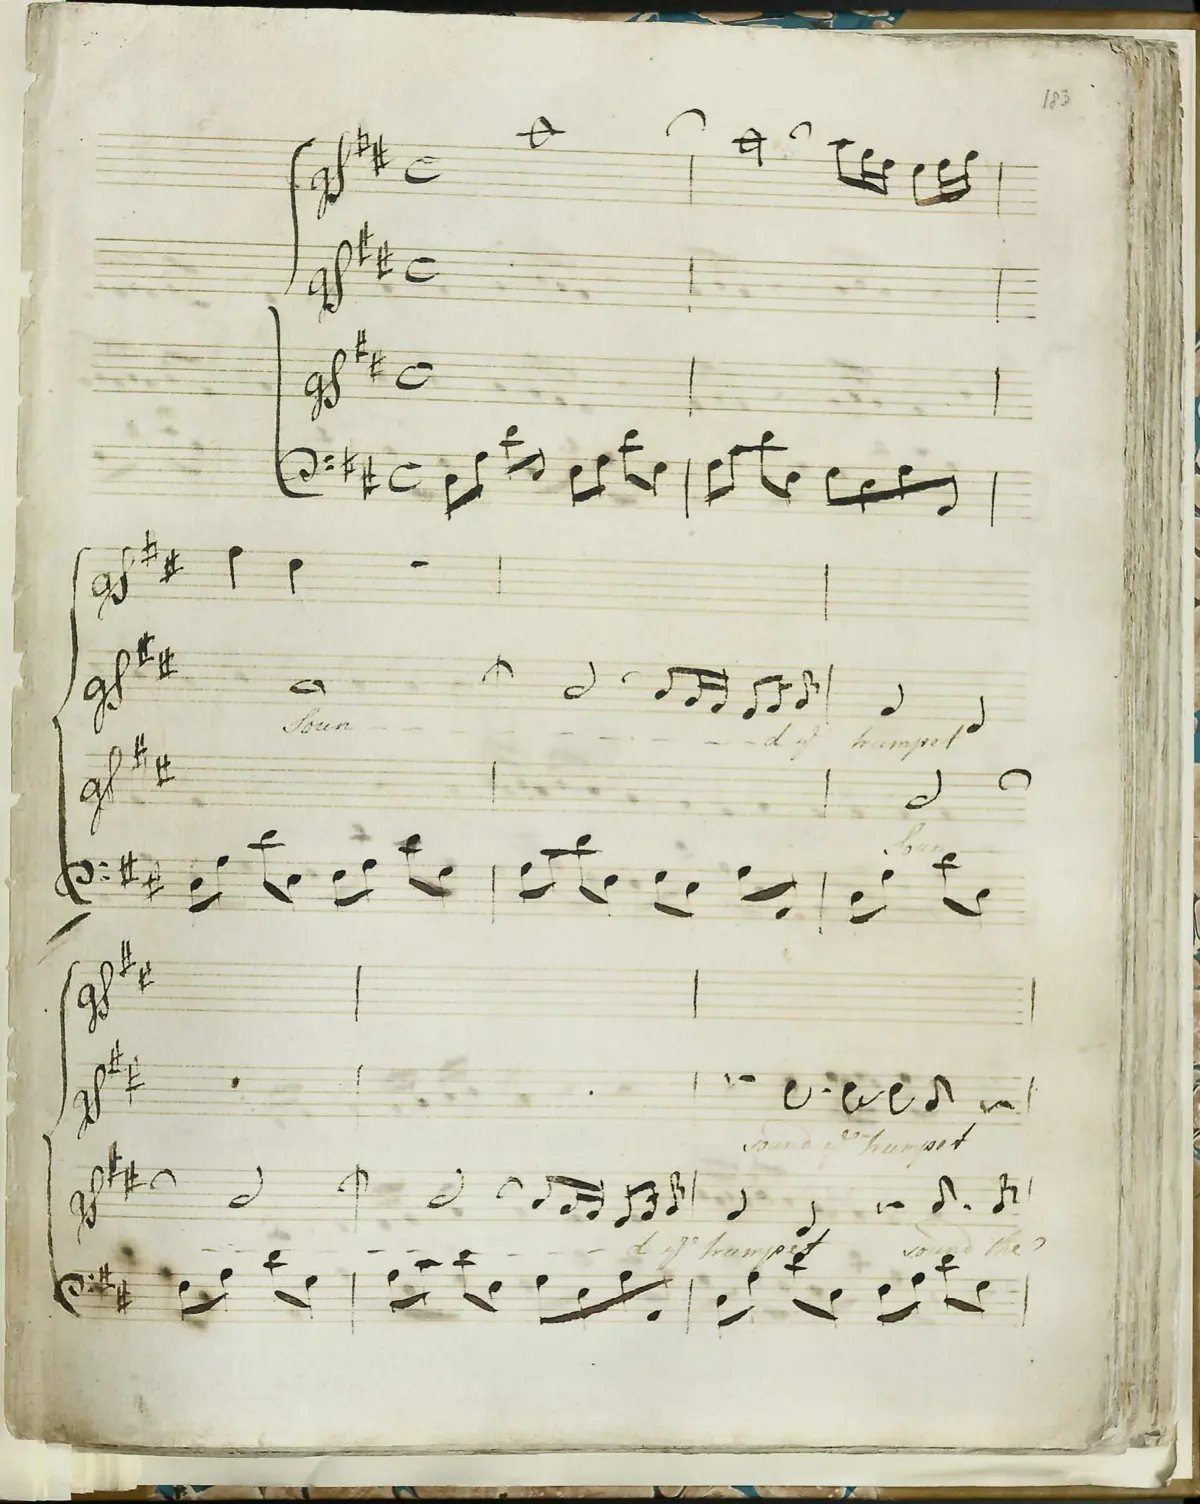 183
Soun - - - - - - - - d yᵉ trumpet
Soun
sound yᵉ trumpet
- - - - - - - - d yᵉ trumpet sound the